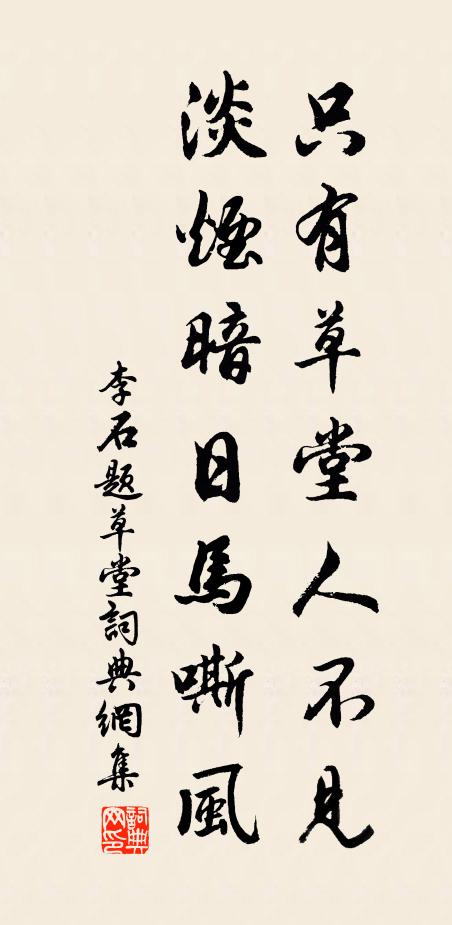 只有草堂人不見
淡煙暗日馬嘶風
李石題草堂詞典網集
詞典
网印